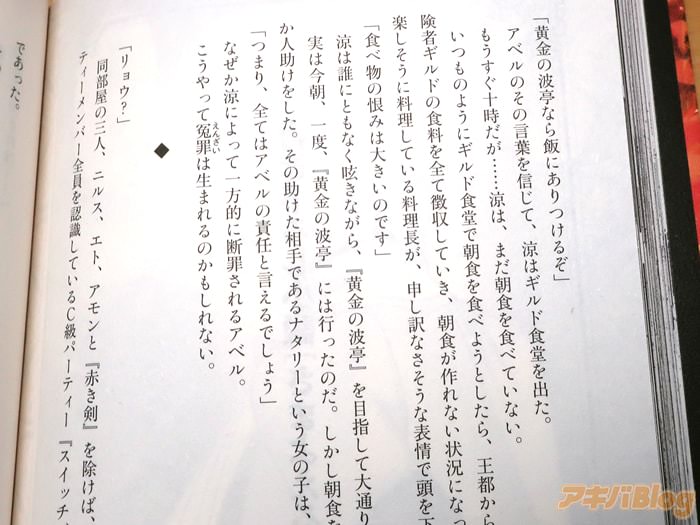 「黄金の波亭なら飯にありつけるぞ」
アベルのその言葉を信じて、涼はギルド食堂を出た。
もうすぐ十時だが……涼は、まだ朝食を食べていない。
いつものようにギルド食堂で朝食を食べようとしたら、王都から
険者ギルドの食料を全て徴収していき、朝食が作れない状況になっ
楽しそうに料理している料理長が、申し訳なさそうな表情で頭を下
「食べ物の恨みは大きいのです」
涼は誰にともなく呟きながら、『黄金の波亭』を目指して大通り
実は今朝、一度、『黄金の波亭』には行ったのだ。しかし朝食を
か人助けをした。その助けた相手であるナタリーという女の子は、
「つまり、全てはアベルの責任と言えるでしょう」
なぜか涼によって一方的に断罪されるアベル。
こうやって冤罪は生まれるのかもしれない。
えんざい
◆
「リョウ？」
同部屋の三人、ニルス、エト、アモンと『赤き剣』を除けば、
ティーメンバー全員を認識しているC級パーティー『スイッチ
であった。
アキバBlog